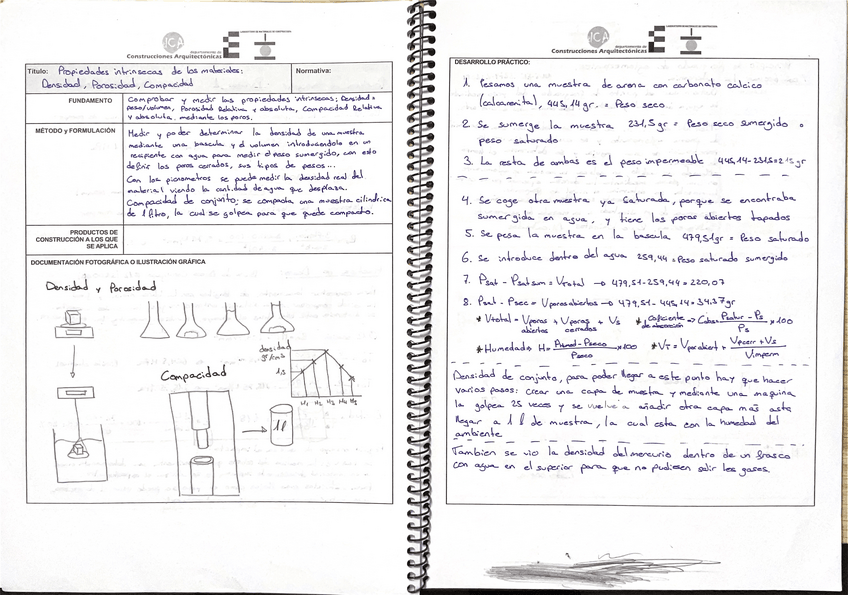 ICA
departamento de
Construcciones Arquitectónicas
Título: Propiedades intrinsecas de los materiales:
Densidad, Porosidad, Compacidad
Normativa:
FUNDAMENTO
Comprobar y medir las propiedades intrinsecas; Densidad =
peso/volumen, Porosidad Relativa y absoluta, Compacidad Relativa
y absoluta. mediante los poros.
MÉTODO y FORMULACIÓN
Medir y poder determinar la densidad de una muestra
mediante una bascula y el volumen introduciendolo en un
recipiente con agua para medir el peso sumergido, con esto
definir los poros cerrados, sus tipos de pesos...
Con los picnometros se puede medir la densidad real del
material viendo la cantidad de agua que desplaza.
Compacidad de conjunto; se compacta una muestra cilindrica
de 1 litro, la cual se golpea para que quede compacto.
PRODUCTOS DE
CONSTRUCCIÓN A LOS QUE
SE APLICA
DOCUMENTACIÓN FOTOGRÁFICA O ILUSTRACIÓN GRÁFICA
Densidad y Porosidad
densidad
gr/cm3
1,5
H1 H2 H3 H4 H5
Compacidad
1l
departamento de
Construcciones Arquitectónicas
DESARROLLO PRÁCTICO:
1. Pesamos una muestra de arena con carbonato calcico
(calcarenita), 445,14 gr. = Peso seco
2. Se sumerge la muestra 231,5 gr = Peso seco sumergido o
peso saturado
3. La resta de ambas es el peso impermeable 445,14-231,5= gr
4. Se coge otra muestra ya saturada, porque se encontraba
sumergida en agua, y tiene los poros abiertos tapados
5. Se pesa la muestra en la bascula 479,51gr = Peso saturado
6. Se introduce dentro del agua 259,44 = Peso saturado sumergido
7. Psat - Psatsum = Vtotal → 479,51-259,44 = 220,07
8. Psat - Psec = Vporosabiertos → 479,51 - 445,14 = 34,37gr
* Vtotal = Vporos abiertos + Vporos cerrados + Vs * coeficiente de absorción => Cabs = Psatur - Ps / Ps x 100
* Humedad => H = Phumed - Pseco / Pseco x 100 * VT = Vporabiert + Vpcerr + Vs / Vimperm
Densidad de conjunto, para poder llegar a este punto hay que hacer
varios pasos: crear una capa de muestra y mediante una maquina
la golpea 25 veces y se vuelve a añadir otra capa mas asta
llegar a 1 l de muestra, la cual esta con la humedad del
ambiente
Tambien se vio la densidad del mercurio dentro de un frasco
con agua en el superior para que no pudiesen salir los gases.